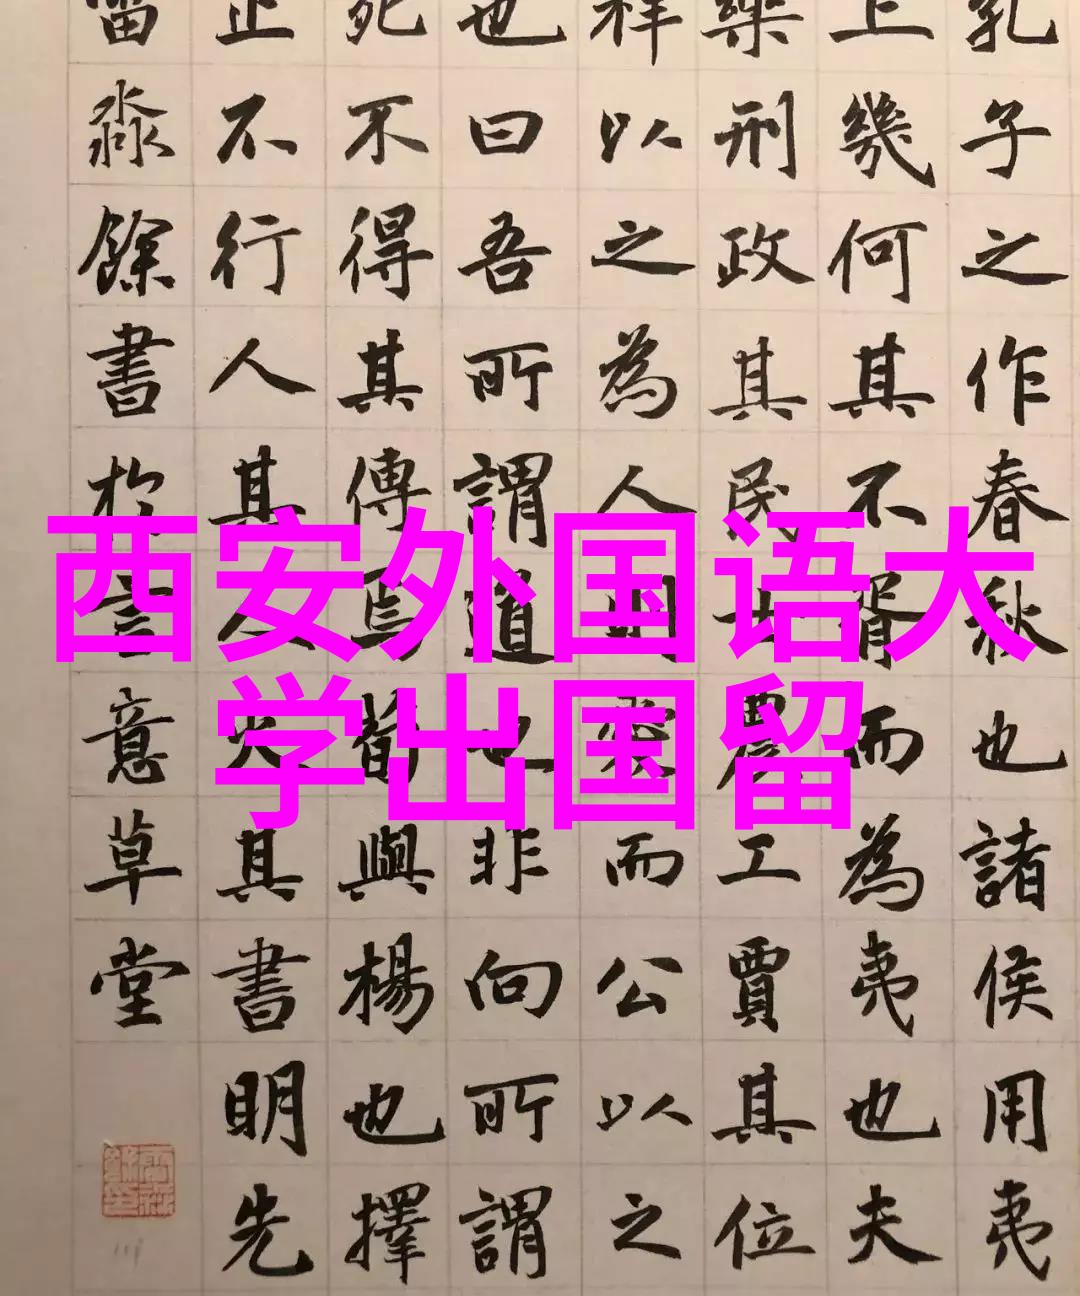 西安外国语大
学出国留
孔子之作春秋也諸侯用夷
上幾何其不胥而為夷也夫
樂刑政其民士農工賈其位
祥以之為人則愛而公以之
也曰吾所謂道也非向所謂
死不得其傳焉荀與楊也擇
止不行人其人火其書明先
淼餘書於意草堂